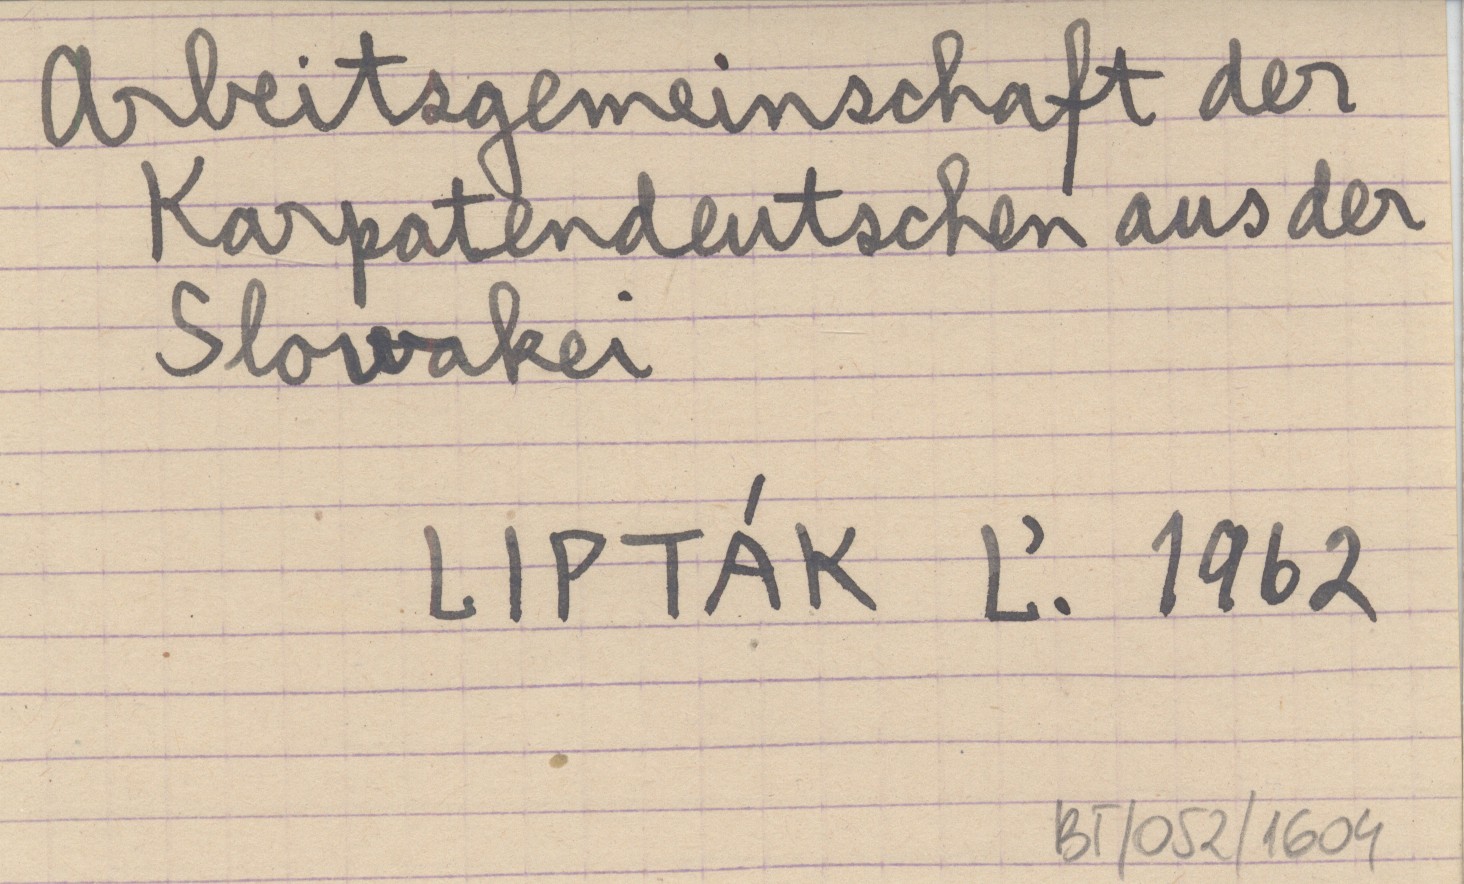 Arbeitsgemeinschaft der
Karpatendeutschen aus der
Slowakei
LIPTÁK Ľ. 1962
BT/052/1604